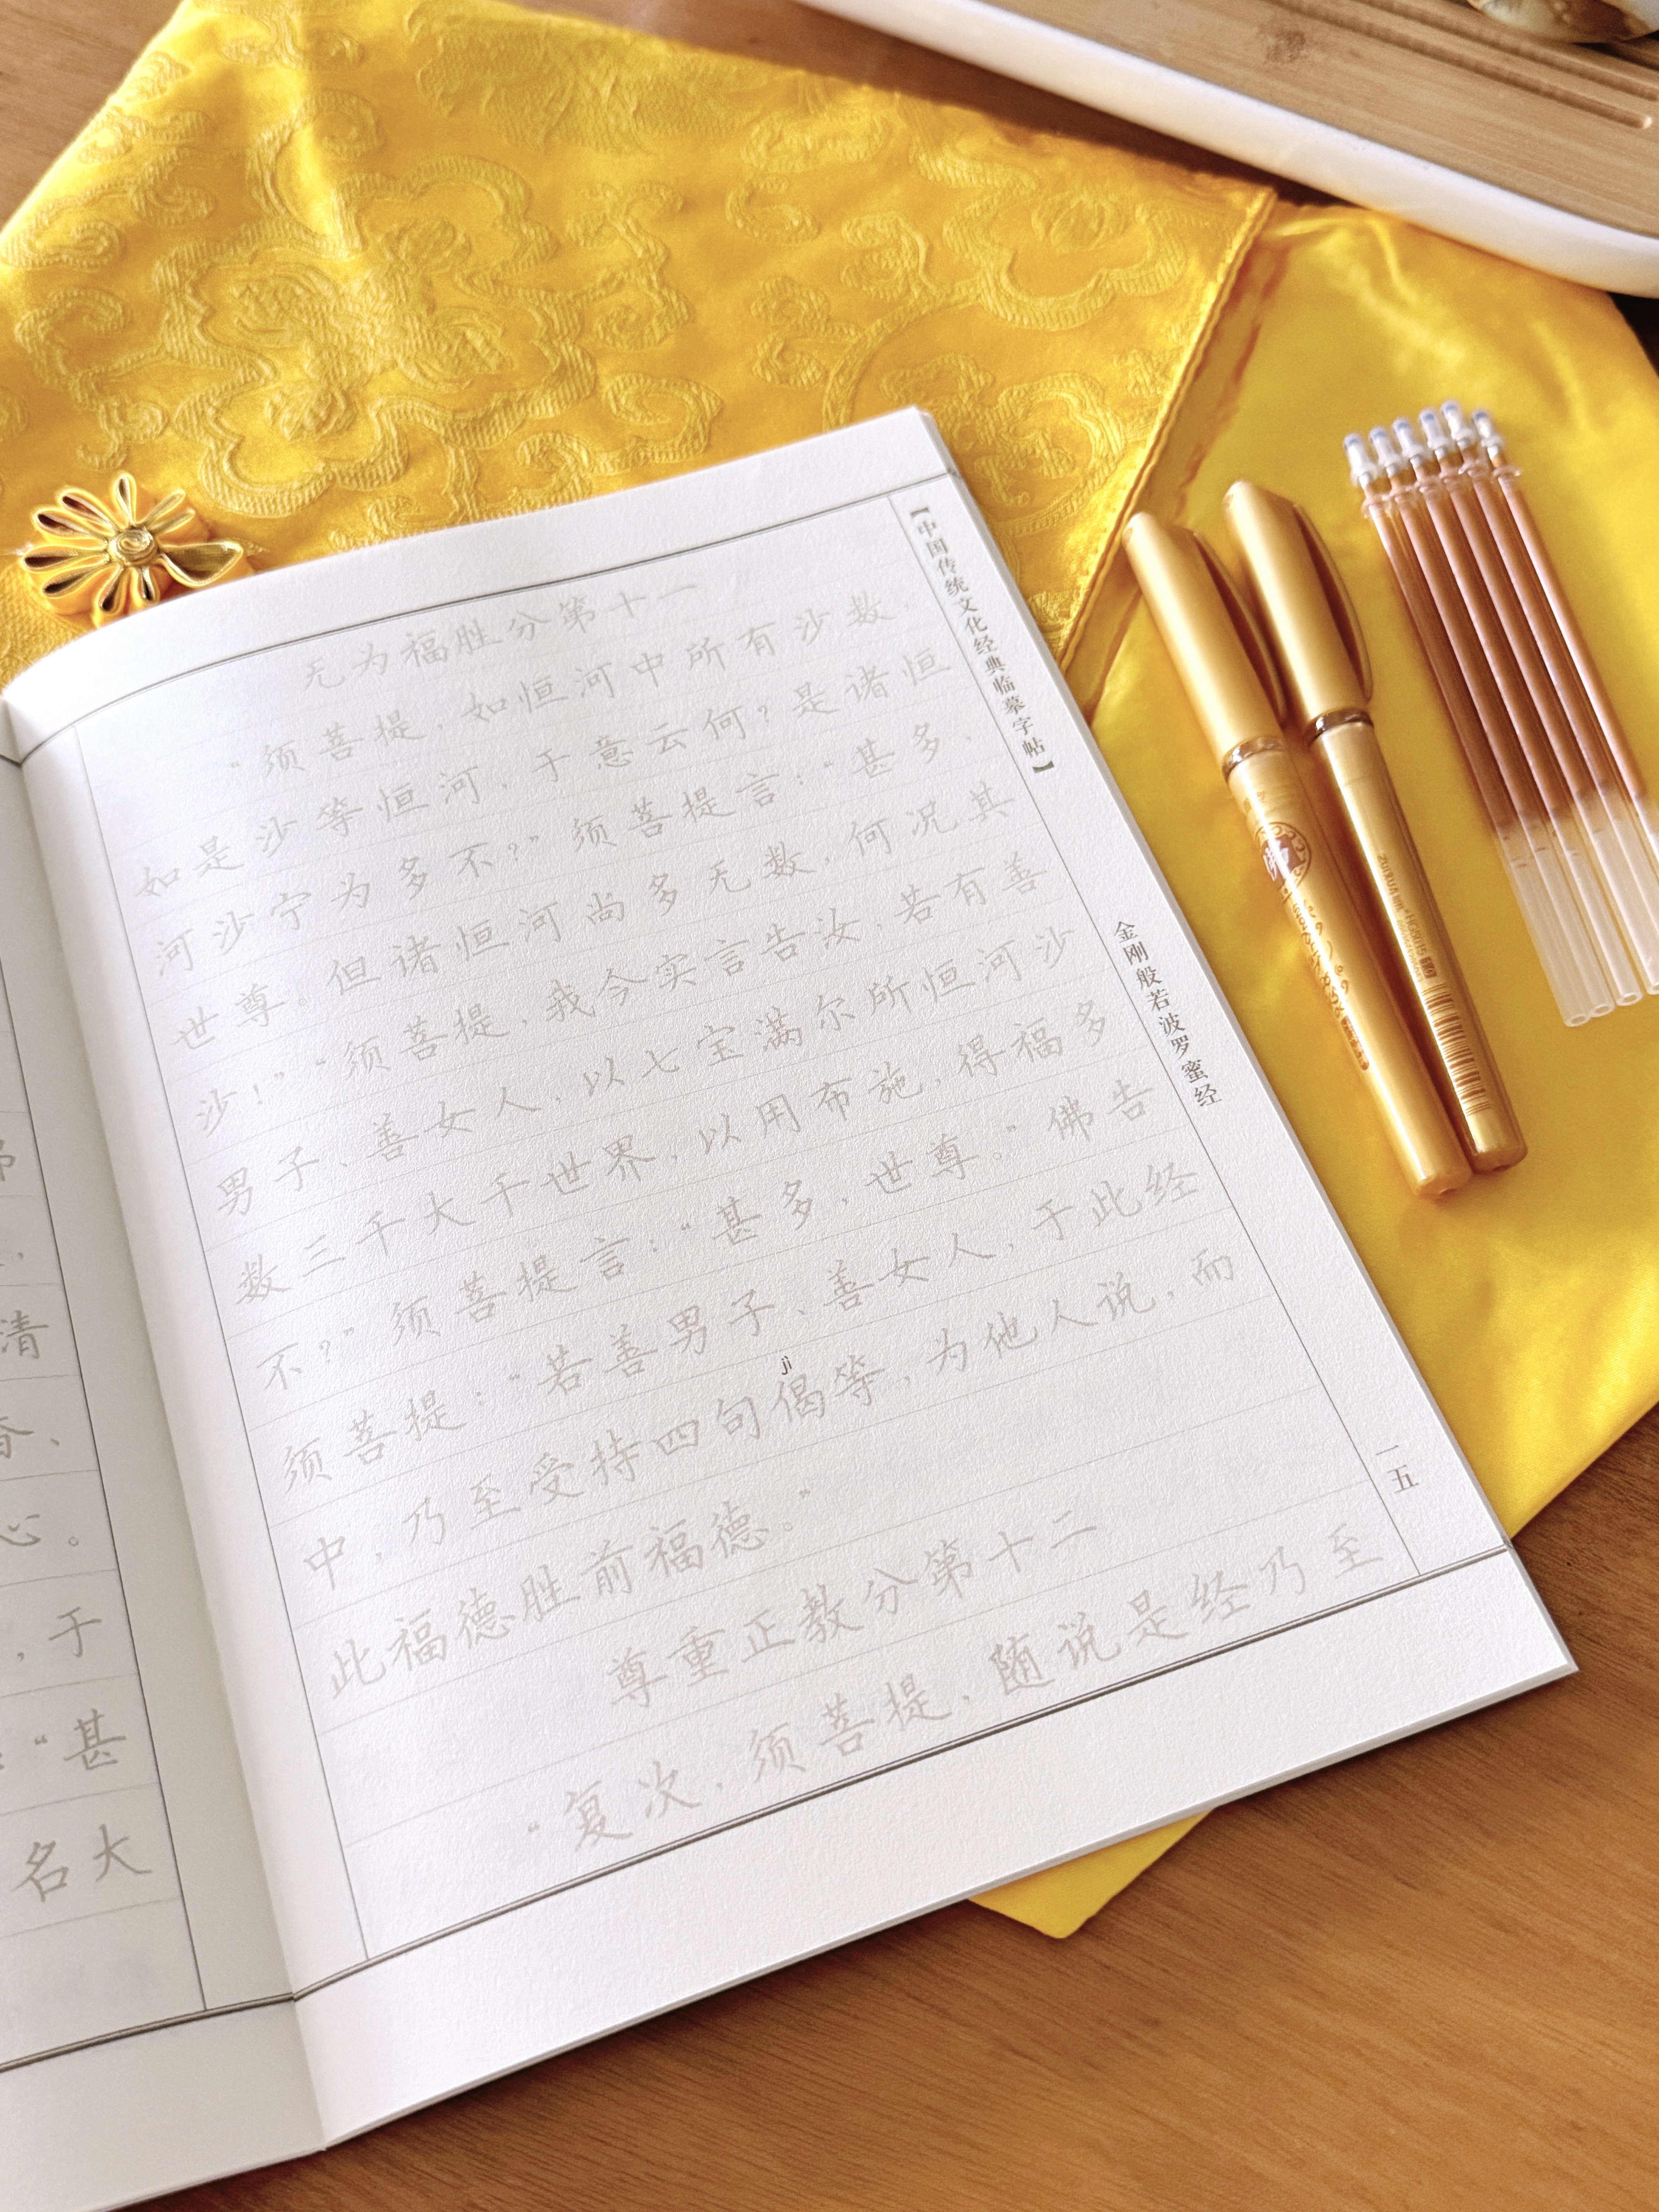 弟
，
清
香、
心。
，于
：“甚
名大
无为福胜分第十一
“须菩提，如恒河中所有沙数，
如是沙等恒河，于意云何？是诸恒
河沙宁为多不？”须菩提言：“甚多，
世尊。但诸恒河尚多无数，何况其
沙！”“须菩提，我今实言告汝：若有善
男子、善女人，以七宝满尔所恒河沙
数三千大千世界，以用布施，得福多
不？”须菩提言：“甚多，世尊。”佛告
须菩提：“若善男子、善女人，于此经
jì
中，乃至受持四句偈等，为他人说，而
此福德胜前福德。”
尊重正教分第十二
“复次，须菩提，随说是经乃至
【中国传统文化经典临摹字帖】
金刚般若波罗蜜经
一五